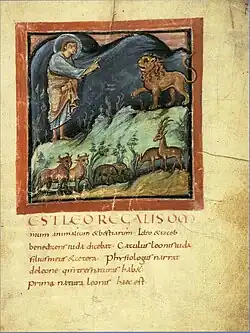 EST LEO REGALIS OM
nium animalium & bestiarum · Ideo & iacob
benedicens iuda dicebat · Catulus leonis iuda
filius meus & cetera · Physiologus narrat
de leone quia tres naturas habet
prima natura leonis haec est ·